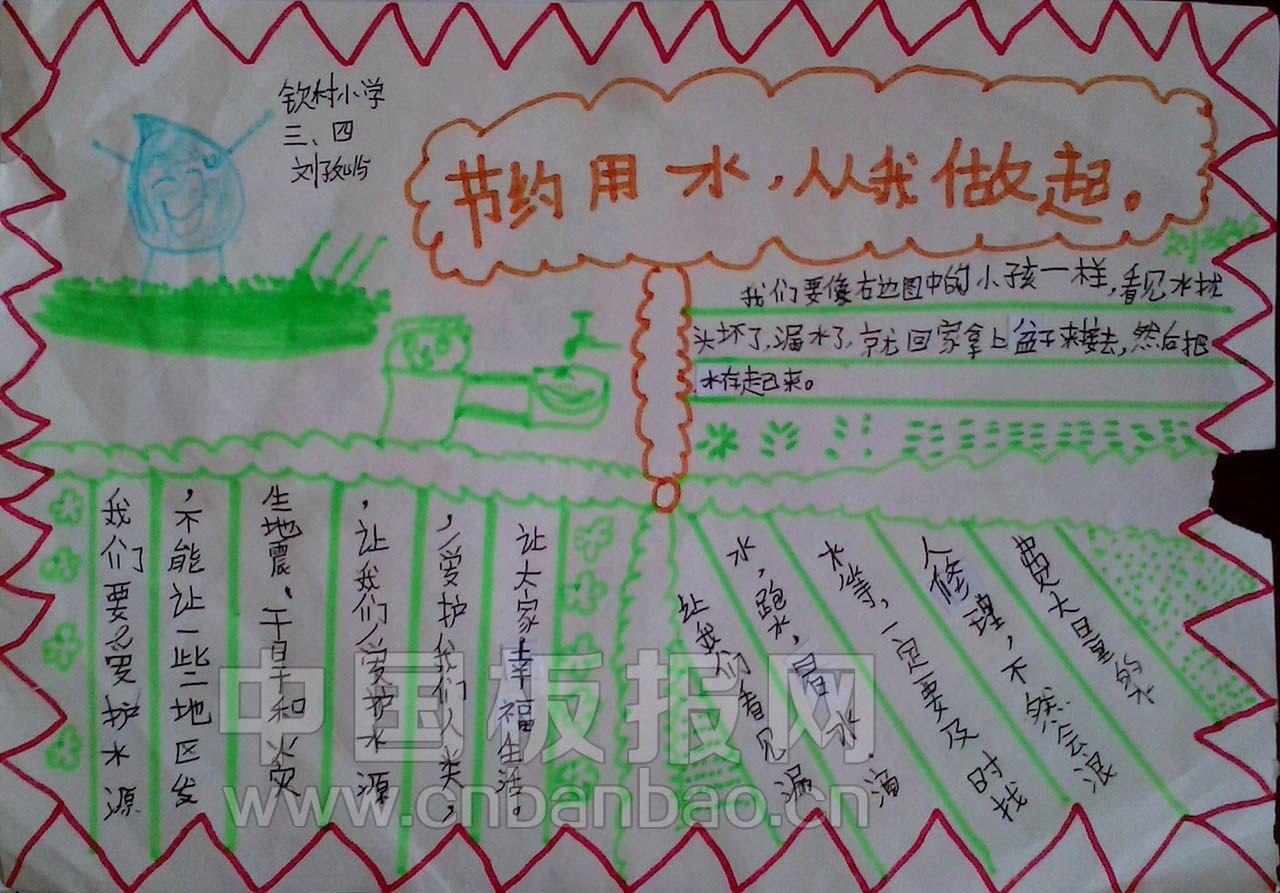 钦村小学
三、四
节约用水，从我做起。
我们要像右边图中的小孩一样，看见水扰
头坏了，漏水了，京尤回家拿上盆子来接去，然后把
水存起已来。
我们要爱护水源
，不能让一些地区发
生地震、干旱和火灾
，让我们爱护水源
，爱护我们人类，
让大家幸福生活。
让我们看见漏
水，跑水，冒水，滴
水等，一定要及时找
人修理，不然会浪
费大量的水
中国板报网
www.cnbanbao.cn